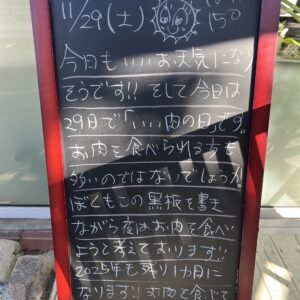 11/29(土)
15°
今日もいいお天気になり
そうです!! そして今日は
29日で「いい肉の日」です。
お肉を食べられる方も
多いのではないでしょうか
ぼくもこの黒板を書き
ながら夜はお肉を食べ
ようと考えております!!
2025年も残り1カ月に
なります!! お肉を食べて